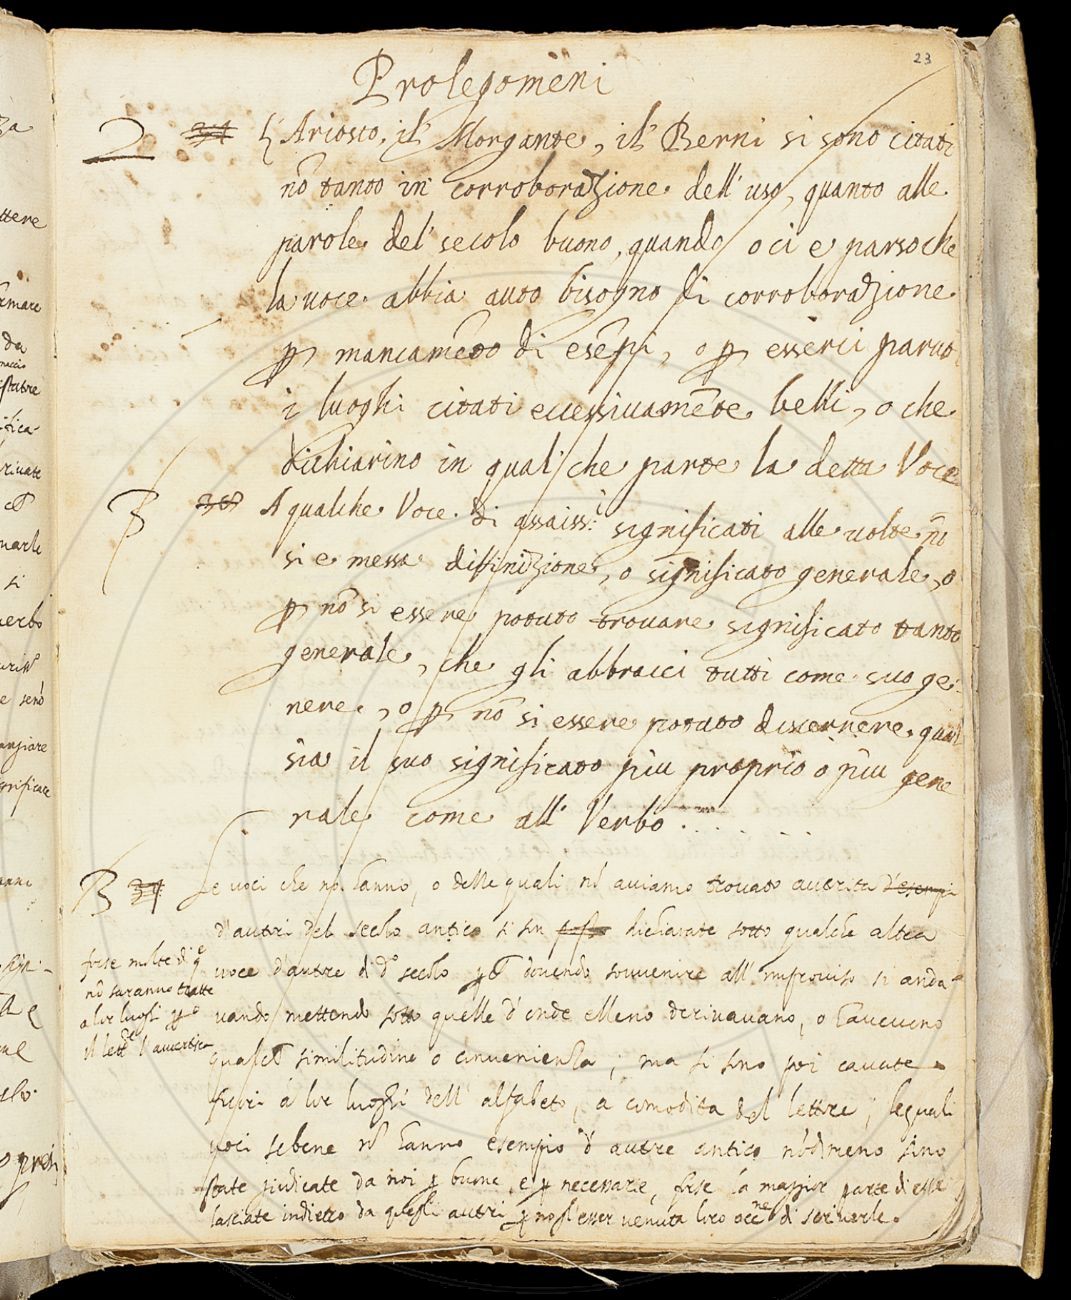 23
Prolegomeni
2 34 L'Ariosto, il Morgante, il Berni si sono citati
nõ tanto in corroborazione dell'uso, quanto alle
parole del secolo buono, quando o ci e parso che
la voce abbia auto bisogno di corroborazione
p mancamẽto di esẽpi, o p esserci paruti
i luoghi citati eccessivamẽte belli, o che
dichiarino in qualche parte la detta Voce
3 38 A qualche Voce di assaiss.i significati alle uolte nõ
si e messa diffinizione, o significato generale, o
p nõ si essere potuto trouare significato tanto
generale, che gli abbracci tutti come suo ge-
nere, o p nõ si essere potuto discernere qual
sia il suo significato piu proprio o piu gene
rale come all'Verbo . . . . . .
3 39 Le voci che nõ hanno, o delle quali nõ aviamo trovato autorita d'esempi
d'autori del secolo antico si son poste dichiarate sotto qualche altra
voce d'autore di d.o secolo pche dovendo souvenire all'improviso si anda-
vano mettendo sotto quelle d'onde elleno derivavano, o haveveno
qualche similitudine o convenienza; ma si sono poi cavate
fuori a lor luoghi dell'alfabeto, a comodita del lettore; le quali
voci sebene nõ hanno esempio d'autore antico nõdimeno sono
state giudicate da noi p buone, e p necessarie, forse la maggior parte di esse
lasciate indietro da quegli autori p nõ esser venuta loro occ.ne di scriverle.
forse molte di q.e
nõ saranno tratte
a lor luoghi po
il lett.e l'avvertisca
ttere
da
verbo
si